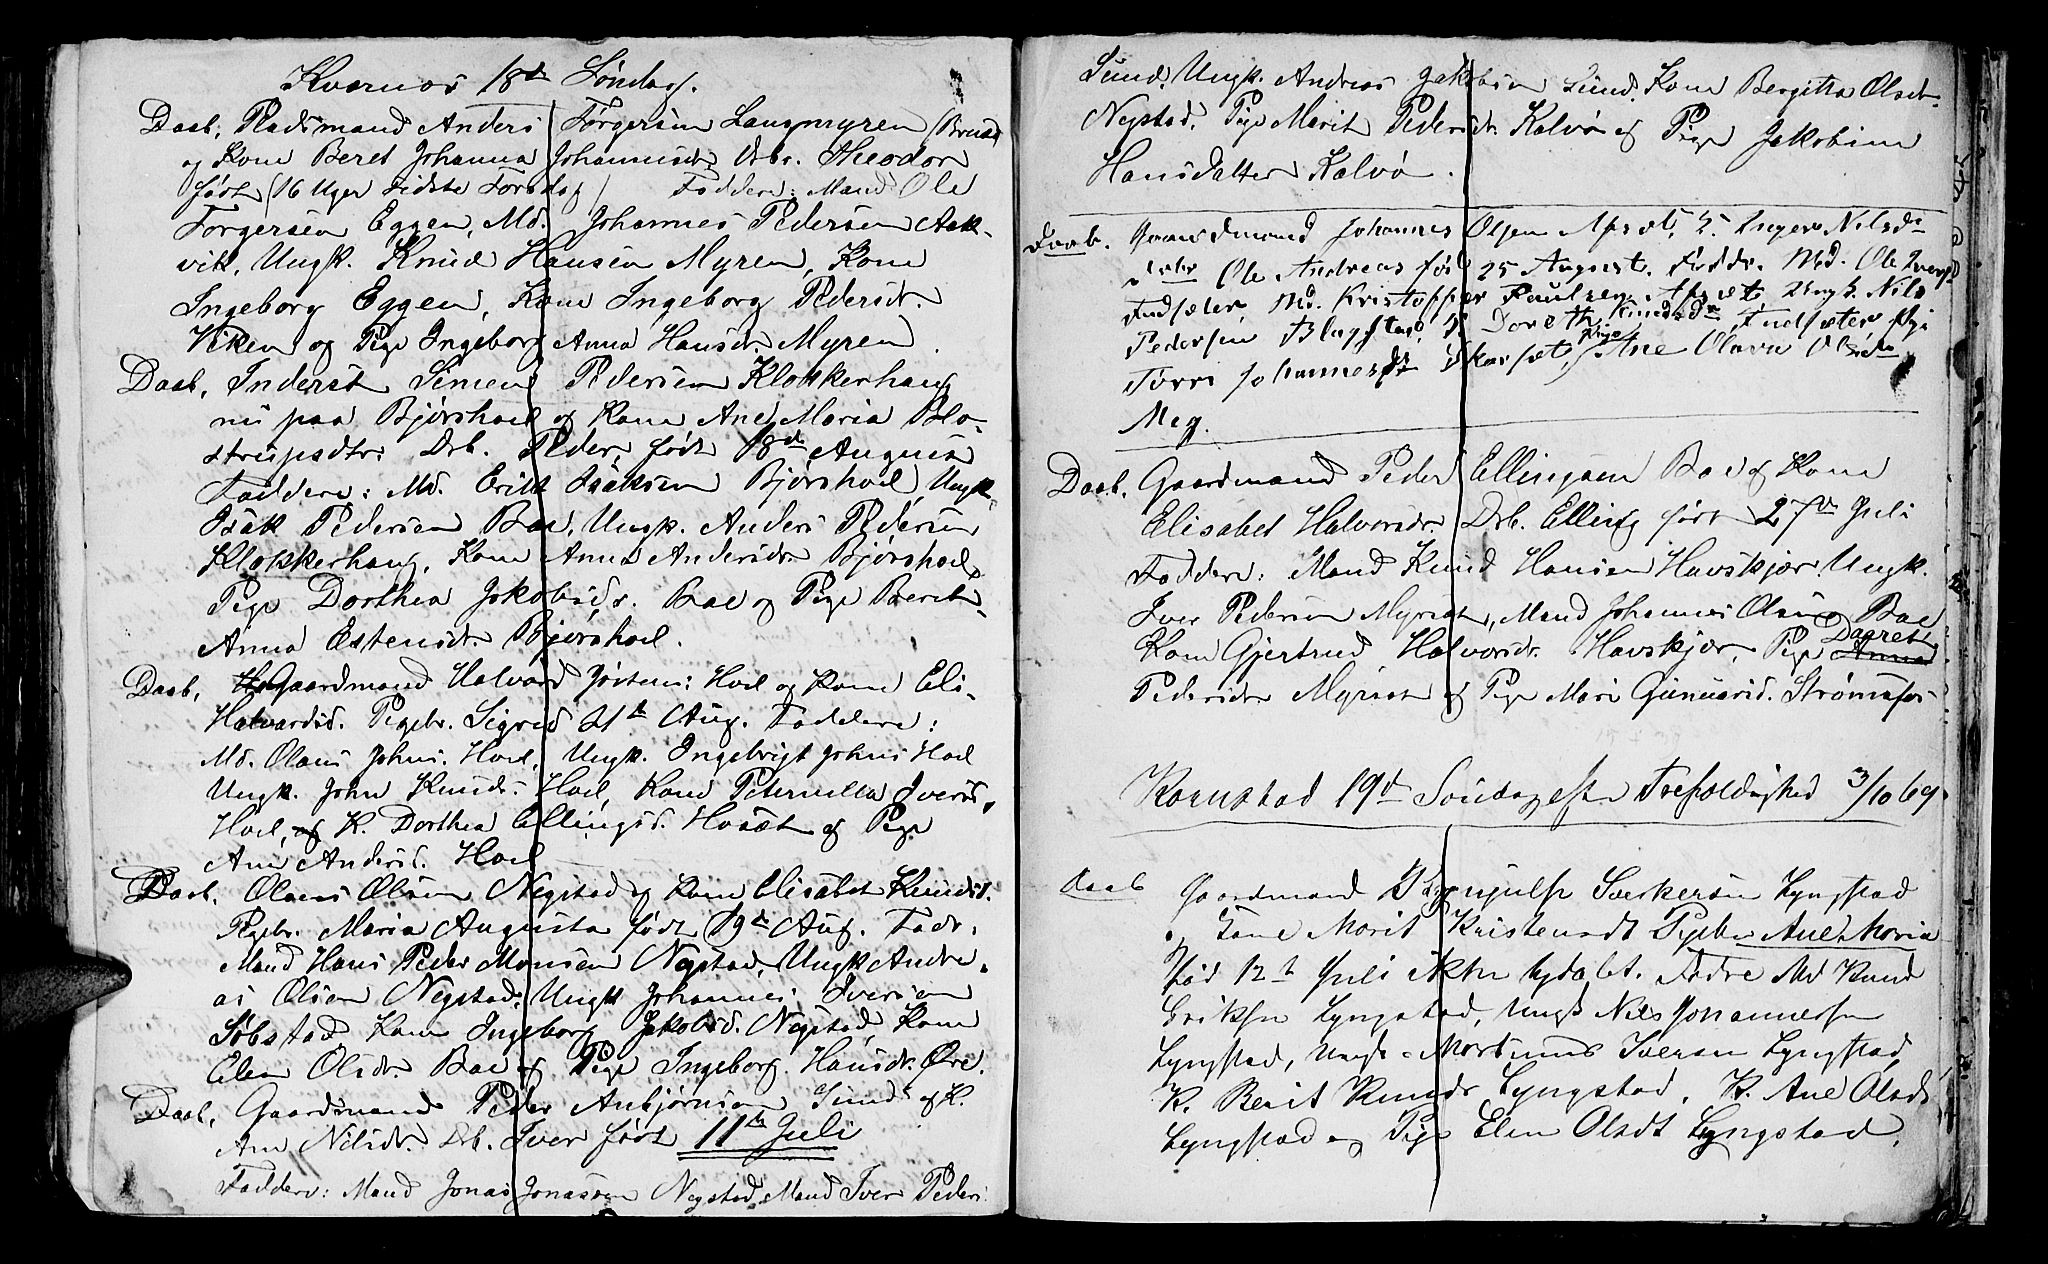 Kværnæs 18de Søndag.
Daab, Pladsmand Anders Torgersen Langmyren (Bruset
og Kone Beret Johanna Johannesdr. Drbr. Theodor
født (16 Uger sidste Torsdag) Faddere: Mand Ole
Torgersen Eggen, Md. Johannes Pedersen Aak-
vik, Ungk. Knud Hansen Myren, Kone
Ingeborg Eggen, Kone Ingeborg Pedersdr.
Viken og Pige Ingeborg Anna Hansdr. Myren.
Daab, Inderst Simen Pedersen Klokkerhaug
nu paa Bjørshoel og Kone Ane Maria Blo-
strupsdtr: Drb. Peder født 18de August
Faddere: Md. Erik Isaksen Bjørshoel, Ungk.
Isak Pedersen Bae, Ungk. Anders Pedersen
Klokkerhaug, Kone Anna Andersdr. Bjørshoel,
Pige Dorthea Jakobsdr. Bae og Pige Bereth-
Anna Estensdr. Bjørshoel.
Daab, Gaardmand Halvard Jostens: Hoel og Kone Eli-
Halvardsd. Pigebr. Sigrid 21de Aug. Faddere:
Md. Olaus Johns. Hoel, Ungk. Ingebrigt Johns Hoel
Ungk. John Knuds. Hoel, Kone Peternella Ivers.
Hoel, og K. Dorthea Ellingsd. Hosæt og Pige
Ane Andersd. Hoel
Daab. Olaus Olsen Negstad og Kone Elisabet Knudsd.
Pigebr. Maria Augusta født 19de Aug. Fadr:
Mand Hans Peder Monsen Negstad, Ungk Andre-
as Olsen Negstad, Ungk Johannes Iversen
Søbstad, Kone Ingeborg Jakobsd. Negstad, Kone
Elen Olsdr. Bae og Pige Ingeborg Hansdr. Øre.
Daab, Gaardmand Peder Anbjørnsen Sund og K.
Ane Nilsdr. Drb. Iver født 11te Juli
Faddere: Mand Jonas Jonassen Negstad, Mand Iver Peders.
Sund, Ungk. Andreas Jakobsen Sund, Kone Bergitta Olsdr.
Negstad, Pige Marit Pedersdr. Kalvø og Pige Jakobine
Hansdatter Kalvø.
Daab. Gaardmand Johannes Olsen Apsæt, K. Inger Nilsd
Ole Andreas fød 25 August. Faddr. Md. Ole Iversen
Md. Kristoffer Paulsen Apsæt, Ungk. Nils
Pedersen Blagstad, K Doroth Knudsdr Pige
Torri Johannesdr Skarsæt, Pige Ane Olava Olsdr
Meg.
Daab, Gaardmand Peder Ellingsen Bae og Kone
Elisabet Halvorsdr. Drb. Elling født 27de Juli
Faddere: Mand Knud Hansen Havskjær, Ungk.
Iver Pedersen Myrset, Mand Johannes Olsen Bae
Kone Gjertrud Halvorsdr. Havskjær, Pige Anna Daaret
Pedersdr Myrset og Pige Mari Gunnarsd. Strømsfor
Kornstad 19de Søndag efter Trefoldighed 3/10 69
Daab Gaardmand Ingjulf Sverkersen Lyngstad
og Kone Marit Kristensdt Pigebr Ane Maria
Fød 12te Juli Fadre Md Knud
Eriksen Lyngstad, Ungk Nils Johannessen
Lyngstad, Ungk. Mortinus Iversen Lyngstad,
K. Berit Knudsdr Lyngstad, K. Ane Olsdr
Lyngstad og Pige Elen Olsdt Lyngstad.